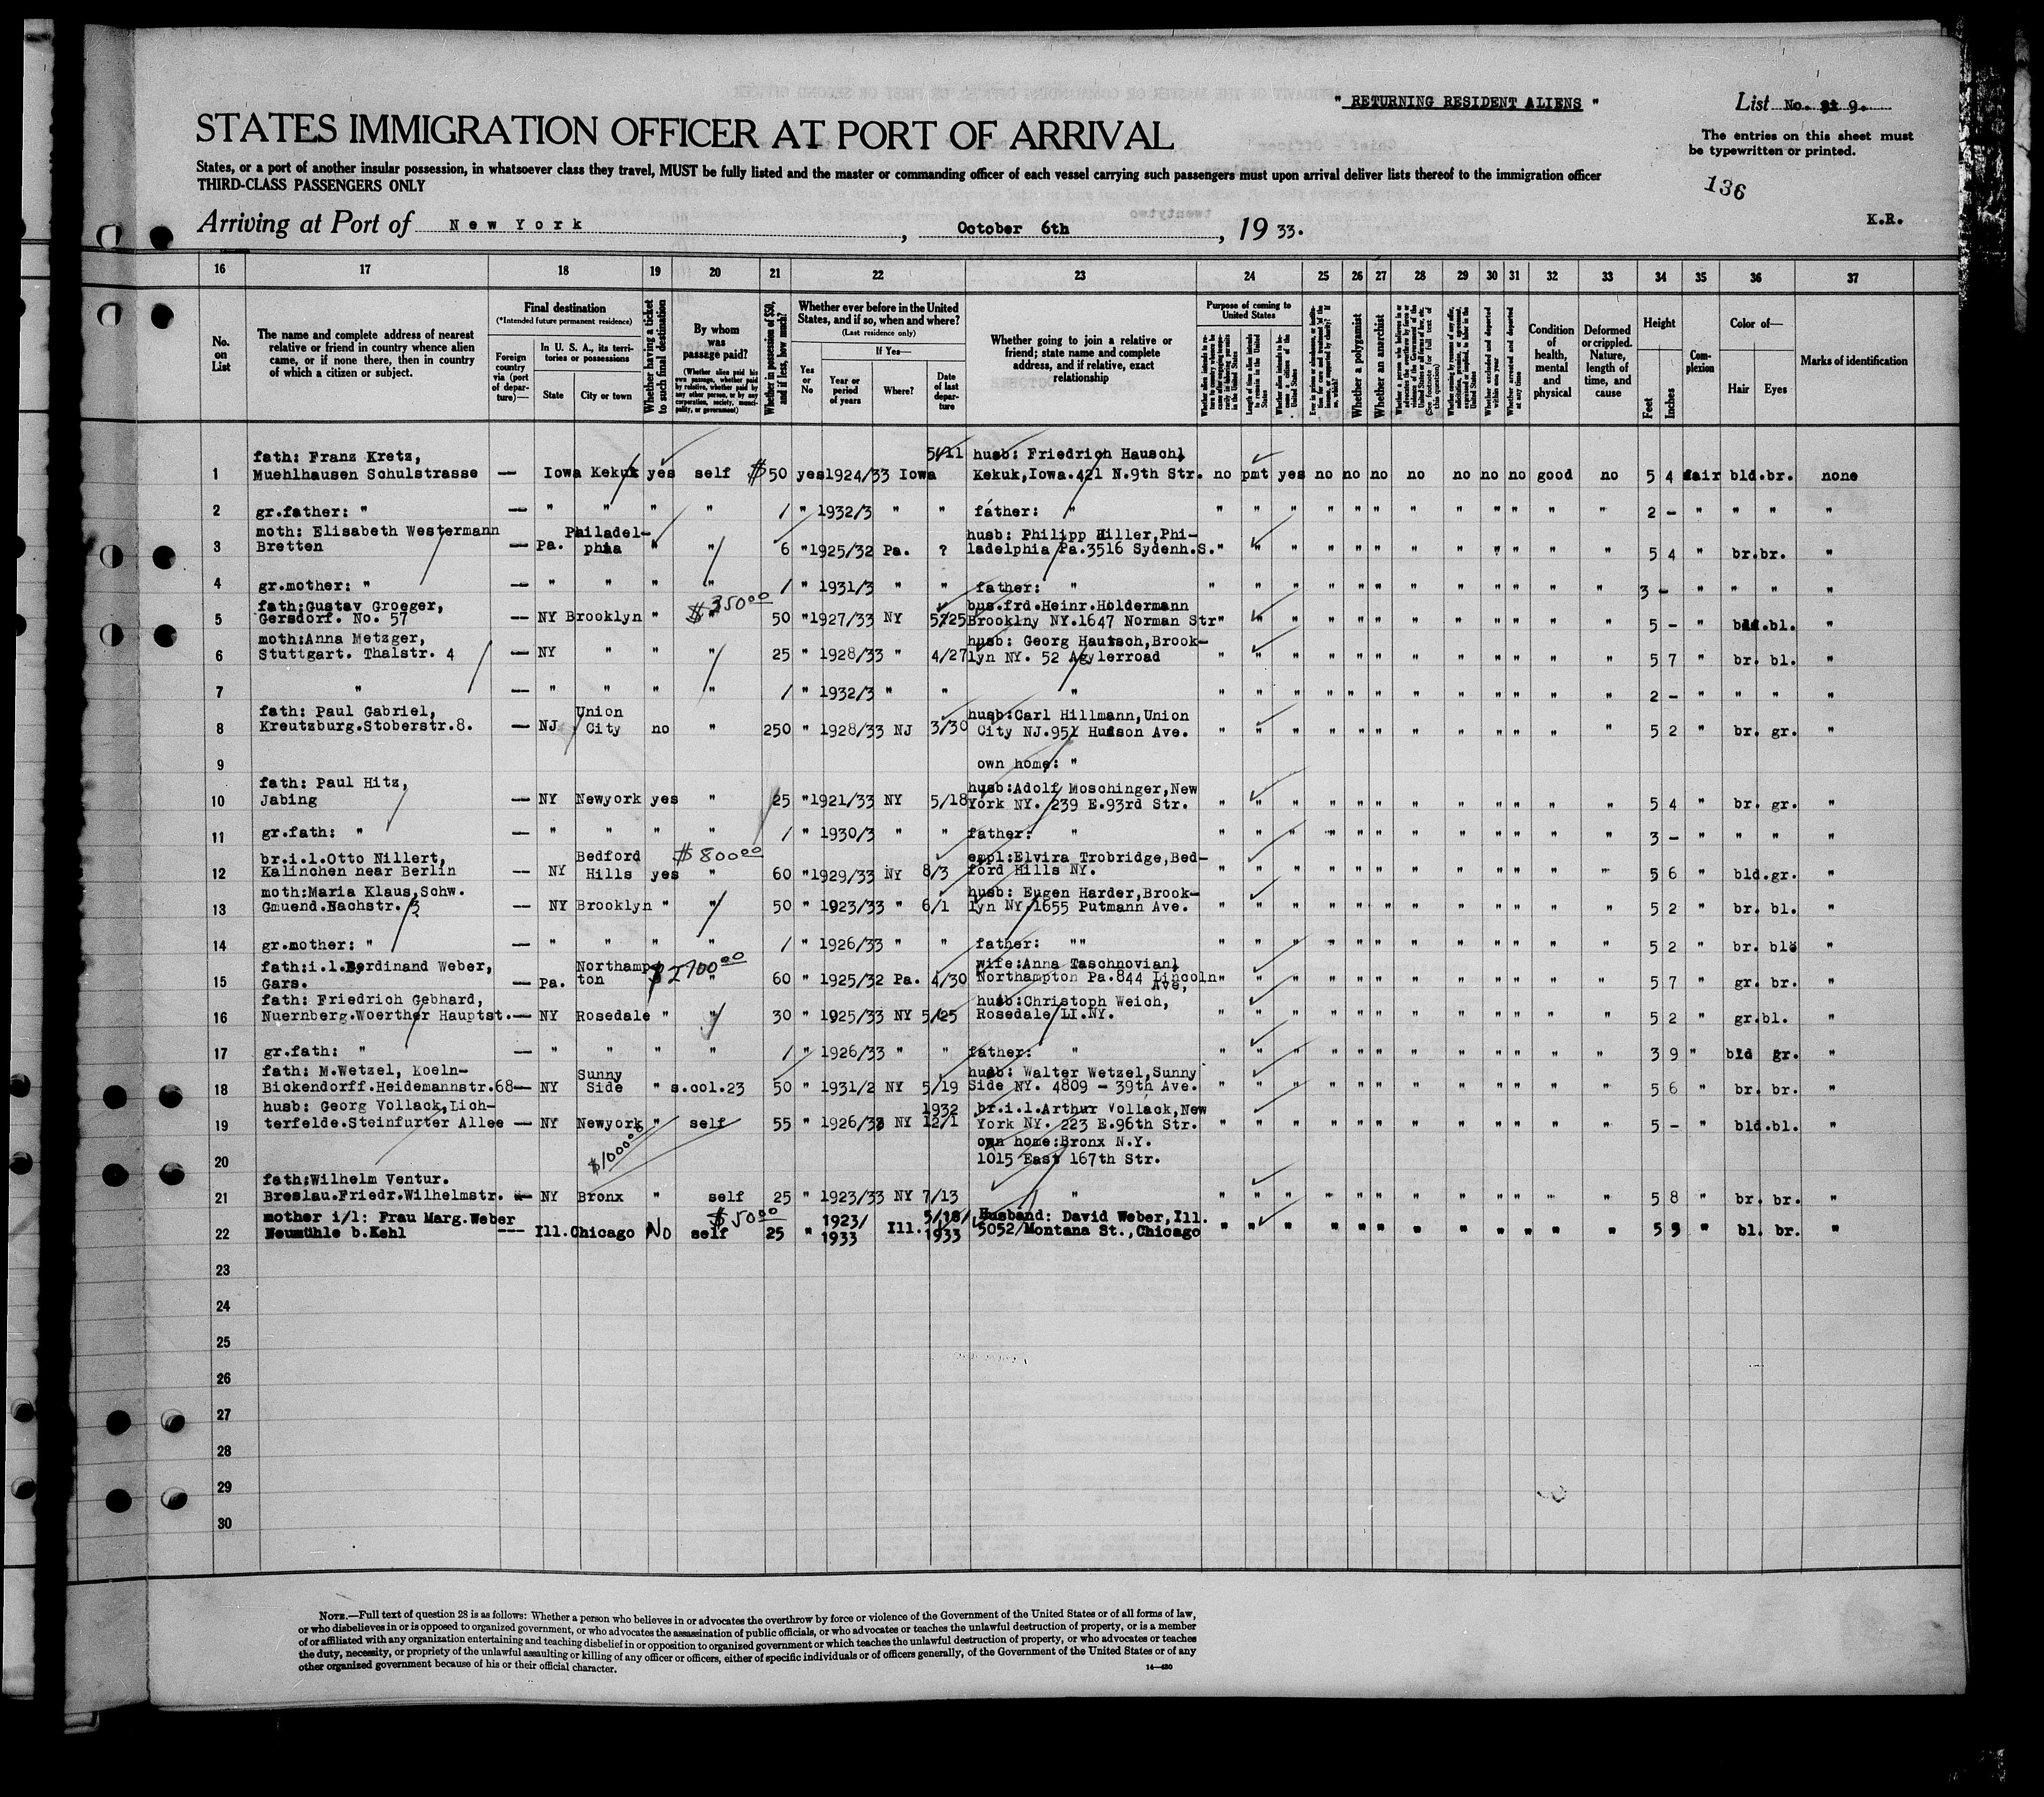 " RETURNING RESIDENT ALIENS "
List No. 9.
STATES IMMIGRATION OFFICER AT PORT OF ARRIVAL
The entries on this sheet must
be typewritten or printed.
States, or a port of another insular possession, in whatsoever class they travel, MUST be fully listed and the master or commanding officer of each vessel carrying such passengers must upon arrival deliver lists thereof to the immigration officer
THIRD-CLASS PASSENGERS ONLY
136
K.R.
Arriving at Port of New York , October 6th , 19 33.
16 17 18 19 20 21 22 23 24 25 26 27 28 29 30 31 32 33 34 35 36 37
No. on List
The name and complete address of nearest relative or friend in country whence alien came, or if none there, then in country of which a citizen or subject.
Final destination
(*Intended future permanent residence)
Foreign country via (port of departure)—
In U. S. A., its territories or possessions
State
City or town
Whether having a ticket to such final destination
By whom was passage paid?
(Whether alien paid his own passage, whether paid by relative, whether paid by any other person, or by any corporation, society, municipality, or government)
Whether in possession of $50, and if less, how much?
Whether ever before in the United States, and if so, when and where?
(Last residence only)
Yes or No
If Yes—
Year or period of years
Where?
Date of last departure
Whether going to join a relative or friend; state name and complete address, and if relative, exact relationship
Purpose of coming to United States
Whether a polygamist
Whether an anarchist
Condition of health, mental and physical
Deformed or crippled. Nature, length of time, and cause
Height
Feet
Inches
Complexion
Color of—
Hair Eyes
Marks of identification
fath: Franz Kretz, 5/11 husb: Friedrich Hauschl
1 Muehlhausen Schulstrasse — Iowa Kekuk yes self $ 50 yes 1924/33 Iowa Kekuk,Iowa.421 N.9th Str. no pmt yes no no no no no no no good no 5 4 fair bld.br. none
2 gr.father: " — " " " " / " 1932/3 " " father: " " " " " " " " " " " " " 2 - " " " "
moth: Elisabeth Westermann Philadel- husb: Philipp Hiller,Phi-
3 Bretten — Pa. phia " " 6 " 1925/32 Pa. ? ladelphia Pa.3516 Sydenh.S. " " " " " " " " " " " " 5 4 " br.br. "
4 gr.mother: " — " " " " / " 1931/3 " " father: " " " " " " " " " " " " " 3 - " " " "
fath:Gustav Groeger, $35000 bus.frd.Heinr.Holdermann
5 Gersdorf. No. 57 — NY Brooklyn " " 50 " 1927/33 NY 5/25 Brooklny NY.1647 Norman Str " " " " " " " " " " " " 5 - " bld.bl. "
moth:Anna Metzger, husb: Georg Hautsch,Brook-
6 Stuttgart. Thalstr. 4 — NY " " " 25 " 1928/33 " 4/27 lyn NY. 52 Agylerroad " " " " " " " " " " " " 5 7 " br. bl. "
7 " — " " " " / " 1932/3 " " " " " " " " " " " " " " " 2 - " " " "
fath: Paul Gabriel, Union husb:Carl Hillmann,Union
8 Kreutzburg.Stoberstr.8. — NJ City no " 250 " 1928/33 NJ 3/30 City NJ.951 Hudson Ave. " " " " " " " " " " " " 5 2 " br. gr. "
9 own home: "
fath: Paul Hitz, husb:Adolf Moschinger,New
10 Jabing — NY Newyork yes " 25 " 1921/33 NY 5/18 York NY. 239 E.93rd Str. " " " " " " " " " " " " 5 4 " br. gr. "
11 gr.fath: " — " " " " / " 1930/3 " " father: " " " " " " " " " " " " " 3 - " " " "
br.i.l.Otto Nillert, Bedford $80000 empl:Elvira Trobridge,Bed-
12 Kalinchen near Berlin — NY Hills yes " 60 " 1929/33 NY 8/3 ford Hills NY. " " " " " " " " " " " " 5 6 " bld.gr. "
moth:Maria Klaus,Schw. husb: Eugen Harder,Brook-
13 Gmuend.Bachstr. 3 — NY Brooklyn " " 50 " 1923/33 " 6/1 lyn NY.1655 Putmann Ave. " " " " " " " " " " " " 5 2 " br. bl. "
14 gr.mother: " — " " " " / " 1926/33 " " father: "" " " " " " " " " " " " " 5 2 " br. "
fath:i.l.Ferdinand Weber, Northamp $270000 wife:Anna Taschnovianl
15 Gars. — Pa. ton " 60 " 1925/32 Pa. 4/30 Northampton Pa.844 Lincoln Ave, " " " " " " " " " " " " 5 7 " gr. br. "
fath: Friedrich Gebhard, husb:Christoph Weich,
16 Nuernberg.Woerther Hauptst. — NY Rosedale " " 30 " 1925/33 NY 5/25 Rosedale LI.NY. " " " " " " " " " " " " 5 2 " gr.bl. "
17 gr.fath: " — " " " " / " 1926/33 " " father: " " " " " " " " " " " " " 3 9 " bld gr. "
fath: M.Wetzel, Koeln- Sunny husb: Walter Wetzel,Sunny
18 Bickendorff.Heidemannstr.68 — NY Side " s.col.23 50 " 1931/2 NY 5/19 Side NY. 4809 - 39th Ave. " " " " " " " " " " " " 5 6 " br. br. "
husb: Georg Vollack,Lich- 1932 br.i.l.Arthur Vollack,New
19 terfelde.Steinfurter Allee — NY Newyork " self 55 " NY 12/1 York NY. 223 E.96th Str. " " " " " " " " " " " " 5 - " bld.bl. "
own home:Bronx N.Y.
20 1015 East 167th Str.
fath:Wilhelm Ventur.
21 Breslau.Friedr.Wilhelmstr. — NY Bronx " self 25 " 1923/33 NY 7/13 " " " " " " " " " " " " " 5 8 " br. br. "
mother i/l: Frau Marg.Weber $5000 1923/ 5/18/ Husband: David Weber,Ill.
22 Neumühle b.Kehl --- Ill.Chicago No self 25 " 1933 Ill. 1933 5052 Montana St.,Chicago " " " " " " " " " " " " 5 " bl. br. "
23
24
25
26
27
28
29
30
NOTE.—Full text of question 28 is as follows: Whether a person who believes in or advocates the overthrow by force or violence of the Government of the United States or of all forms of law,
or who disbelieves in or is opposed to organized government, or who advocates the assassination of public officials, or who advocates or teaches the unlawful destruction of property, or is a member
of or affiliated with any organization entertaining and teaching disbelief in or opposition to organized government or which teaches the unlawful destruction of property, or who advocates or teaches
the duty, necessity, or propriety of the unlawful assaulting or killing of any officer or officers, either of specific individuals or of officers generally, of the Government of the United States or of any
other organized government because of his or their official character.
14—430